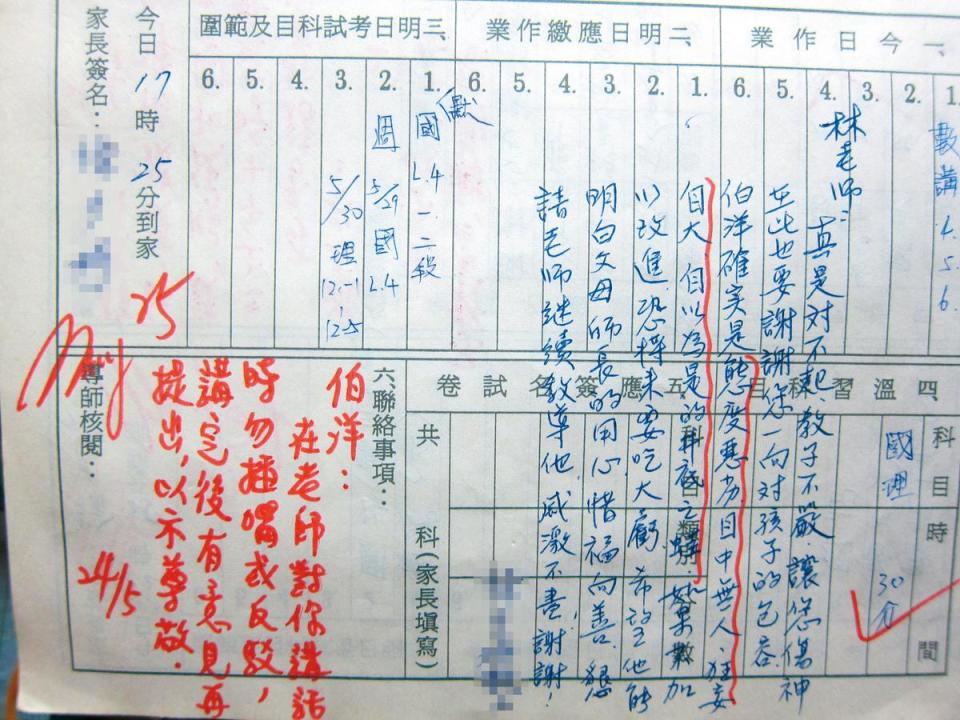 一今日作業
1.
2.
3.
4.
5.
6.
數講4.5.6
二明日應繳作業
1.
2.
3.
4.
5.
6.
三、明日考試科目及範圍
1.
2.
3.
4.
5.
6.
國L4一二段(默
週5/29國L4
5/30理12-1
12-5
今日17時25分到家
家長簽名：
林老師：
真是對不起，教子不嚴，讓您傷神
至此也要謝謝您一向對孩子的包容.
伯洋確實是態度惡劣目中無人.狂妄
自大自以為是的井底之蛙.如果不加
以改進恐將來要吃大虧希望他能
明白父母師長的用心惜福向善.懇
請老師繼續教導他感激不盡謝謝!
四溫習科目
科目
時間
國理
30分
五應簽名試卷
科目
類別
分數
共
科(家長填寫)
六、聯絡事項：
伯洋：
在老師對你講話
時勿插嘴或反駁，
講完後有意見再
提出，以示尊敬.
25
導師核閱：
24/5